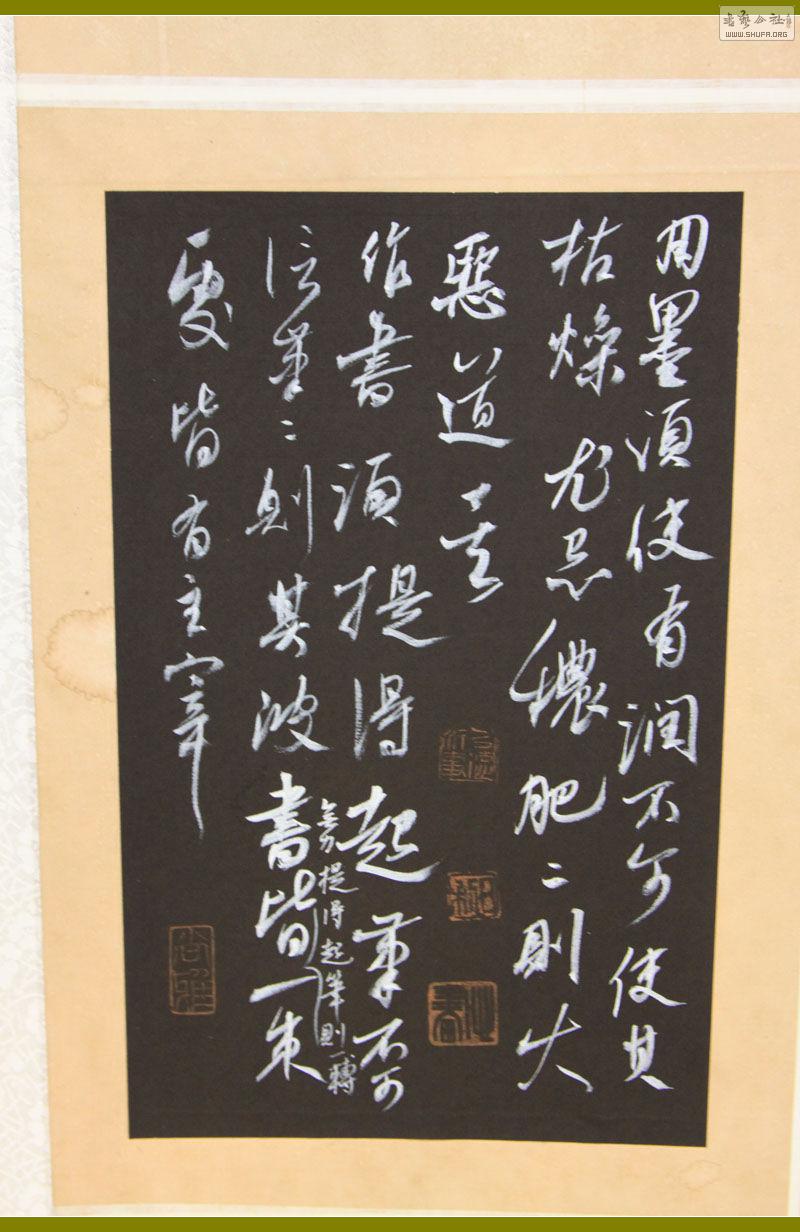 用墨須使有潤不可使其
枯燥尤忌穠肥〻則大
惡道矣
作書須提得起筆不可
信筆〻則其波書皆一束
無力提得起筆則一轉
處皆有主宰
書藝公社
WWW.SHUFA.ORG